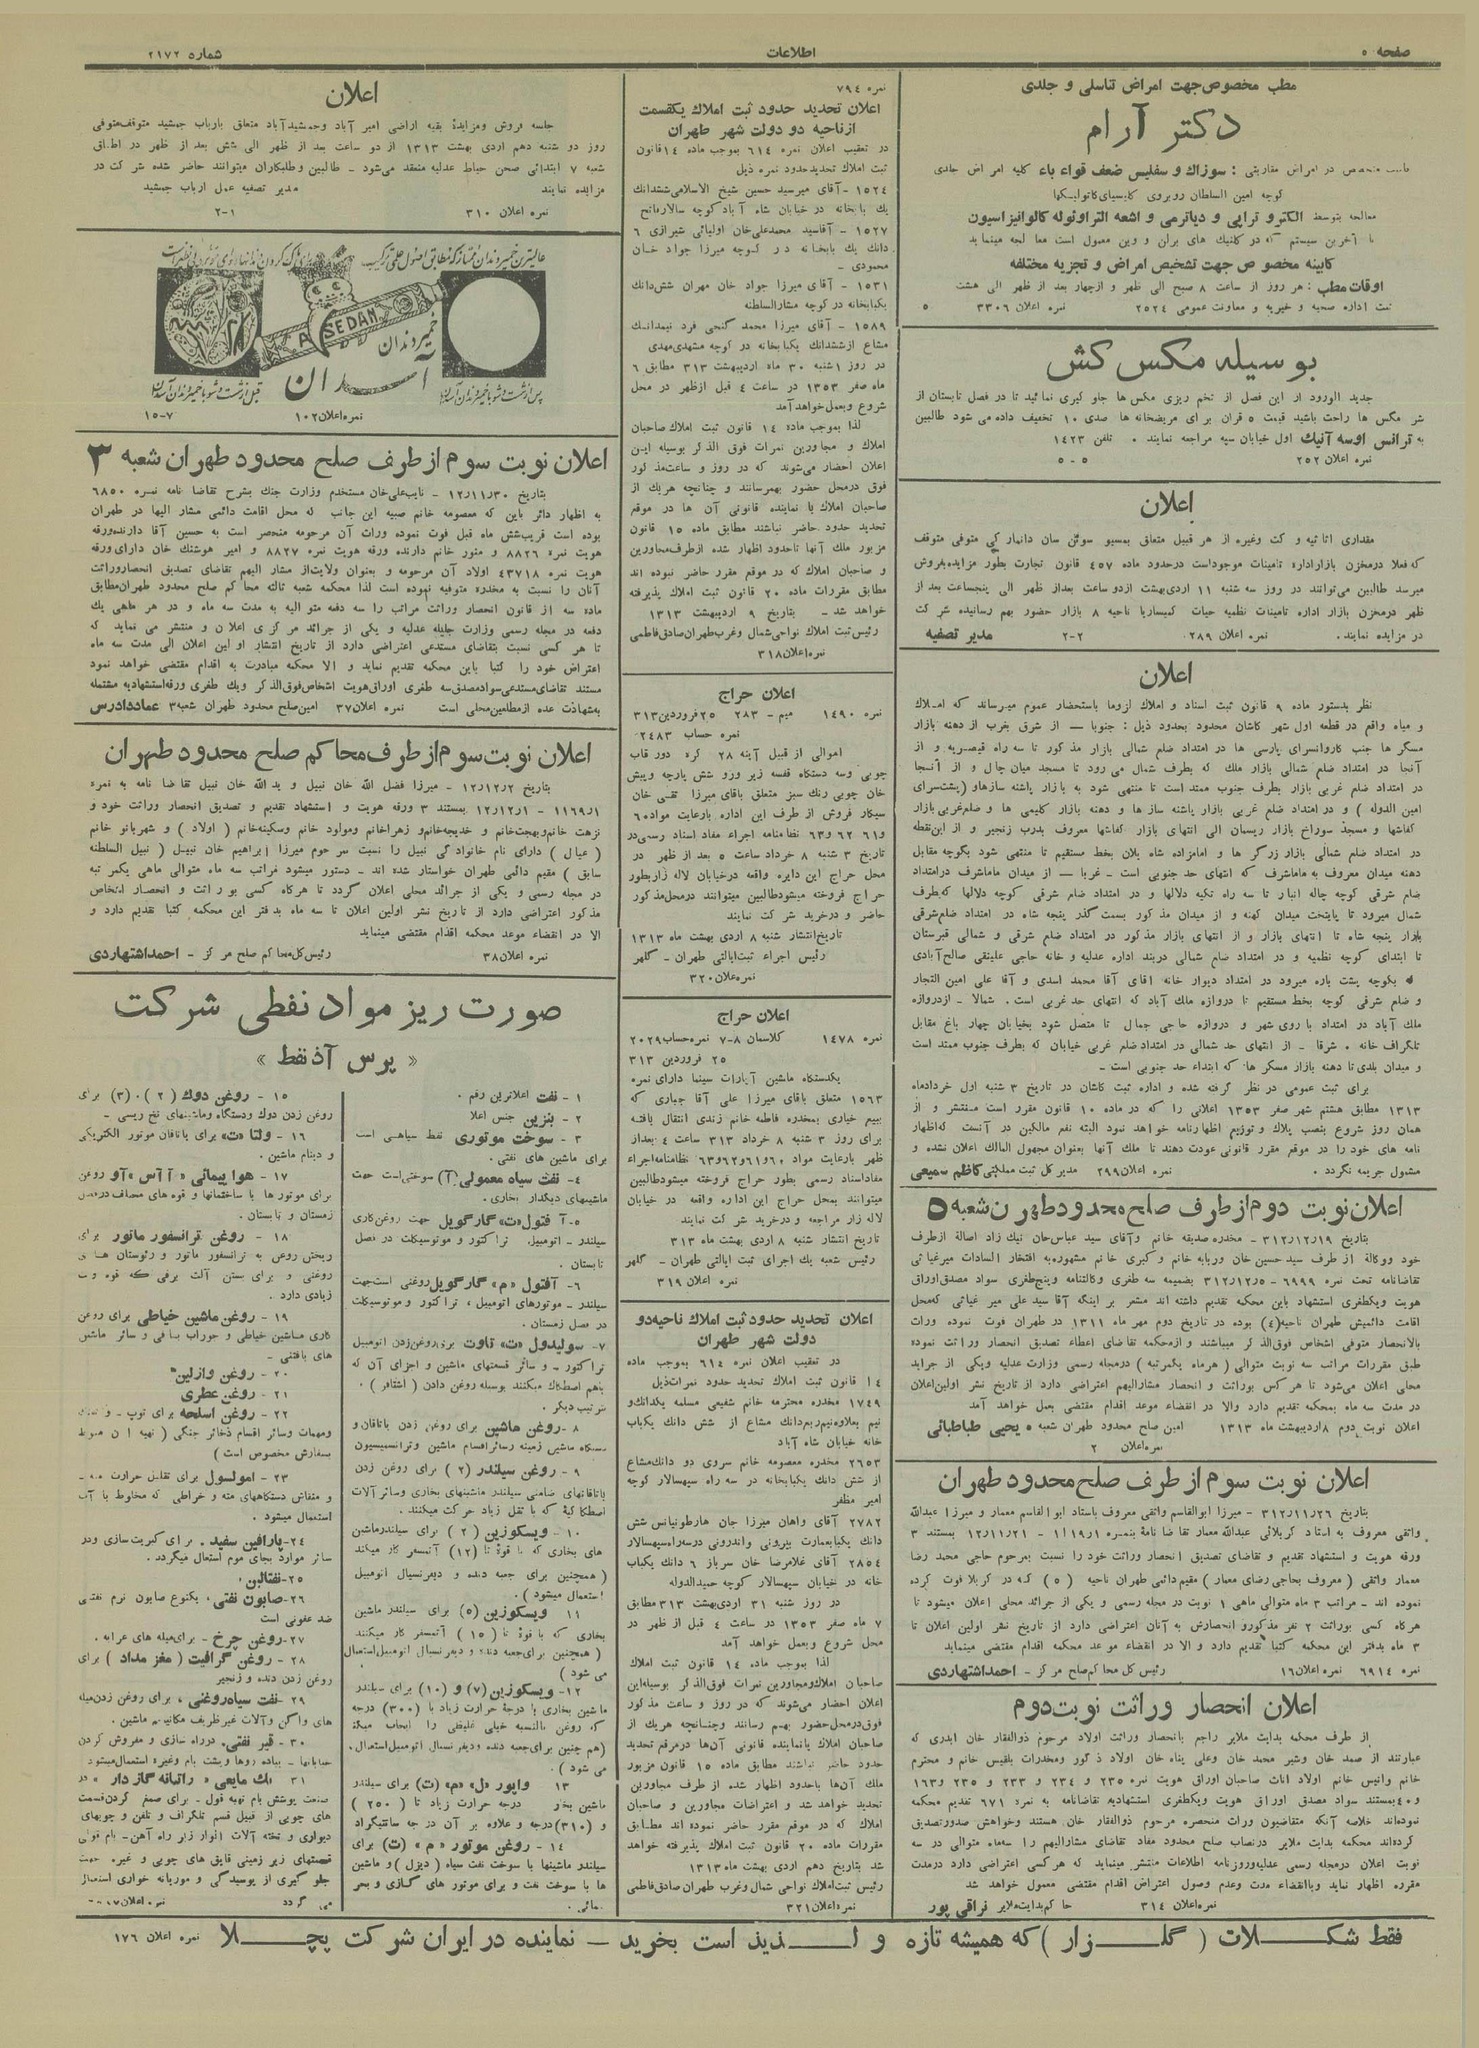 صفحه ۵
اطلاعات
شماره ۲۱۷۲
مطب مخصوص جهت امراض تناسلی و جلدی
دکتر آرام
متخصص در امراض مقاربتی : سوزاك و سفلیس ضعف قواء باء کلیه امراض جلدی
کوچه امین السلطان روبروی کلیسیای کاتولیکها
معالجه بتوسط الکترو تراپی و دیاترمی و اشعه التراویوله کالوانیزاسیون
با آخرین سیستم که در کلنیك های برلن و وین معمول است معالجه مینماید
کابینه مخصوص جهت تشخیص امراض و تجزیه مختلفه
اوقات مطب : هر روز از ساعت ۸ صبح الی ظهر و از چهار بعد از ظهر الی هشت
ثبت اداره صحیه و خیریه و معاونت عمومی ۲۵۲۴ نمره اعلان ۳۳۰۶ ۵
بوسیله مکس کش
جدید الورود از این فصل از تخم ریزی مکس ها جلو گیری نمائید تا در فصل تابستان از
شر مکس ها راحت باشید قیمت ۵ قران برای مریضخانه ها صدی ۱۰ تخفیف داده می شود طالبین
به ترانس اوسه آنیك اول خیابان سپه مراجعه نمایند . تلفن ۱۴۲۳
نمره اعلان ۲۵۲ ۵ - ۵
اعلان
مقداری اثاثیه و کت وغیره از هر قبیل متعلق بمسیو سوئن سان دانمارکی متوفی متوقف
که فعلا در مخزن بازار اداره تامینات موجود است در حدود ماده ۴۵۷ قانون تجارت بطور مزایده بفروش
میرسد طالبین می‌توانند در روز سه شنبه ۱۱ اردی بهشت از دو ساعت بعد از ظهر الی پنجساعت بعد از
ظهر در مخزن بازار اداره تامینات نظمیه حیات کمیساریا ناحیه ۸ بازار حضور بهم رسانیده شرکت
در مزایده نمایند . نمره اعلان ۲۸۹ ۲-۲ مدیر تصفیه
اعلان
نظر بدستور ماده ۹ قانون ثبت اسناد و املاك لزوما باستحضار عموم میرساند که املاك
و میاه واقع در قطعه اول شهر کاشان محدود بحدود ذیل : جنوبا — از شرق بغرب از دهنه بازار
مسگر ها جنب کاروانسرای پارسی ها در امتداد ضلع شمالی بازار مذکور تا سه راه قیصریه و از
آنجا در امتداد ضلع شمالی بازار ملك که بطرف شمال می رود تا مسجد میان چال و از آنجا
در امتداد ضلع غربی بازار بطرف جنوب ممتد است تا منتهی شود به بازار پاشنه سازها و (پشت سرای
امین الدوله ) و در امتداد ضلع غربی بازار پاشنه ساز ها و دهنه بازار کلیمی ها و ضلع غربی بازار
کفاشها و مسجد سوراخ بازار ریسمان الی انتهای بازار کفاشها معروف بدرب زنجیر و از این نقطه
در امتداد ضلع شمالی بازار زرگر ها و امامزاده شاه یلان بخط مستقیم تا منتهی شود بکوچه مقابل
دهنه میدان معروف به ماماشرف که انتهای حد جنوبی است - غربا — از میدان ماماشرف در امتداد
ضلع شرقی کوچه چاله انبار تا سه راه تکیه دلالها و در امتداد ضلع شرقی کوچه دلالها که بطرف
شمال میرود تا پایتخت میدان کهنه و از میدان مذکور بسمت گذر پنجه شاه در امتداد ضلع شرقی
بازار پنجه شاه تا انتهای بازار و از انتهای بازار مذکور در امتداد ضلع شرقی و شمالی قبرستان
تا ابتدای کوچه نظمیه و در امتداد ضلع شمالی دربند اداره عدلیه و خانه حاجی علینقی صالح آبادی
بکوچه پشت باره میرود در امتداد دیوار خانه آقای آقا محمد اسدی و آقا علی امین التجار
و ضلع شرقی کوچه بخط مستقیم تا دروازه ملك آباد که انتهای حد غربی است . شمالا - از دروازه
ملك آباد در امتداد باروی شهر و دروازه حاجی جمال تا متصل شود بخیابان چهار باغ مقابل
تلگراف خانه . شرقا - از انتهای حد شمالی در امتداد ضلع غربی خیابان که بطرف جنوب ممتد است
و میدان بلدی تا دهنه بازار مسگر ها که ابتداء حد جنوبی است -
برای ثبت عمومی در نظر گرفته شده و اداره ثبت کاشان در تاریخ ۳ شنبه اول خرداد ماه
۱۳۱۳ مطابق هشتم شهر صفر ۱۳۵۳ اعلانی را که در ماده ۱۰ قانون مقرر است منتشر و از
همان روز شروع بنصب پلاك و توزیع اظهارنامه خواهد نمود البته نفع مالکین در آنست که اظهار
نامه های خود را در موقع مقرر قانونی عودت دهند تا ملك آنها بعنوان مجهول المالك اعلان نشده و
مشمول جریمه نگردد . نمره اعلان ۲۹۹ مدیر کل ثبت مملکتی کاظم سمیعی
اعلان نوبت دوم از طرف صلح محدود طهران شعبه ۵
بتاریخ ۳۱۲/۱۲/۱۹ - مخدره صدیقه خانم و آقای سید عباس خان نیك زاد اصالة از طرف
خود و وکالة از طرف سید حسین خان و ربابه خانم و کبری خانم مشهوره به افتخار السادات میرغیاثی
تقاضانامه تحت نمره ۶۹۹۹ - ۳۱۲/۱۲/۵ بضمیمه سه طغری وکالتنامه و پنج طغری سواد مصدق اوراق
هویت ویکطغری استشهاد باین محکمه تقدیم داشته اند مشعر بر اینکه آقا سید علی میر غیاثی که محل
اقامت دائمیش طهران ناحیه (۴) بوده در تاریخ دوم مهر ماه ۱۳۱۱ در طهران فوت نموده وراث
بالانحصار متوفی اشخاص فوق الذکر میباشند و از محکمه تقاضای اعطاء تصدیق انحصار وراثت نموده
طبق مقررات مراتب سه نوبت متوالی ( هر ماه یکمرتبه ) در مجله رسمی وزارت عدلیه ویکی از جراید
محلی اعلان می‌شود تا هر کس بوراثت و انحصار مشارالیهم اعتراضی دارد از تاریخ نشر اولین اعلان
در مدت سه ماه بمحکمه تقدیم دارد والا در انقضاء موعد اقدام مقتضی بعمل خواهد آمد
اعلان نوبت دوم ۸ اردیبهشت ماه ۱۳۱۳ امین صلح محدود طهران شعبه ۵ یحیی طباطبائی
نمره اعلان ۲
اعلان نوبت سوم از طرف صلح محدود طهران
بتاریخ ۳۱۲/۱۱/۲۶ - میرزا ابوالقاسم واثقی معروف باستاد ابوالقاسم معمار و میرزا عبدالله
واثقی معروف به استاد کربلائی عبدالله معمار تقاضا نامهٔ بنمره ۱۱۱۹/۱ - ۱۲/۱۱/۲۱ بمستند ۳
ورقه هویت و استشهاد تقدیم و تقاضای تصدیق انحصار وراثت خود را نسبت بمرحوم حاجی محمد رضا
معمار واثقی ( معروف بحاجی رضای معمار ) مقیم دائمی طهران ناحیه ( ۵ ) که در کربلا فوت کرده
نموده اند - مراتب ۳ ماه متوالی ماهی ۱ نوبت در مجله رسمی و یکی از جرائد محلی اعلان میشود تا
هر گاه کسی بوراثت ۲ نفر مذکور و انحصارش به آنان اعتراضی دارد از تاریخ نشر اولین اعلان تا
۳ ماه بدفتر این محکمه کتبا تقدیم دارد و الا در انقضاء موعد محکمه اقدام مقتضی مینماید
نمره ۶۹۱۴ نمره اعلان ۱۶ رئیس کل محاکم صلح مرکز - احمد اشتهاردی
اعلان انحصار وراثت نوبت دوم
از طرف محکمه بدایت ملایر راجع بانحصار وراثت اولاد مرحوم ذوالفقار خان ابدری که
عبارتند از صمد خان وشیر محمد خان وعلی پناه خان اولاد ذکور ومخدرات بلقیس خانم و محترم
خانم وانیس خانم اولاد اناث صاحبان اوراق هویت نمره ۲۳۵ و ۲۳۴ و ۲۳۳ و ۲۳۵ و ۱۶۳
و ۴۰ بمستند سواد مصدق اوراق هویت ویکطغری استشهادیه تقاضانامه به نمره ۶۷۱ تقدیم محکمه
نموده‌اند خلاصه آنکه متقاضیون وراث منحصره مرحوم ذوالفقار خان هستند وخواهش صدور تصدیق
کرده‌اند محکمه بدایت ملایر در نصاب صلح محدود مفاد تقاضای مشارالیهم را سه ماه متوالی در سه
نوبت اعلان در مجله رسمی عدلیه وروزنامه اطلاعات منتشر مینماید که هر کسی اعتراضی دارد در مدت
مقرره اظهار نماید وبا انقضاء مدت وعدم وصول اعتراض اقدام مقتضی معمول خواهد شد
نمره اعلان ۳۱۴ حاکم بدایت ملایر نراقی پور
نمره ۷۹۴
اعلان تحدید حدود ثبت املاك یکقسمت
از ناحیه دو دولت شهر طهران
در تعقیب اعلان نمره ۶۱۴ بموجب ماده ۱۴ قانون
ثبت املاك تحدید حدود نمره ذیل
۱۵۲۴ - آقای میر سید حسین شیخ الاسلامی ششدانك
یك بابخانه در خیابان شاه آباد کوچه سالار مانع
۱۵۲۷ - آقا سید محمد علی خان اولیائی شیرازی ۶
دانك یك بابخانه در کوچه میرزا جواد خان
محمودی -
۱۵۳۱ - آقای میرزا جواد خان مهران شش دانك
یکبابخانه در کوچه مشار السلطنه
۱۵۸۹ - آقای میرزا محمد گنجی فرد نیمدانك
مشاع از ششدانك یکبابخانه در کوچه مشهدی مهدی
در روز ۱ شنبه ۳۰ ماه اردیبهشت ۳۱۳ مطابق ۶
ماه صفر ۱۳۵۳ در ساعت ۴ قبل از ظهر در محل
شروع و بعمل خواهد آمد
لذا بموجب ماده ۱۴ قانون ثبت املاك صاحبان
املاك و مجاورین نمرات فوق الذکر بوسیله این
اعلان احضار می‌شوند که در روز و ساعت مذکور
فوق در محل حضور بهمرسانند و چنانچه هر یك از
صاحبان املاك یا نماینده قانونی آن ها در موقع
تحدید حدود حاضر نباشند مطابق ماده ۱۵ قانون
مزبور ملك آنها با حدود اظهار شده از طرف مجاورین
و صاحبان املاك که در موقع مقرر حاضر نبوده اند
مطابق مقررات ماده ۲۰ قانون ثبت املاك پذیرفته
خواهد شد - بتاریخ ۹ اردیبهشت ۱۳۱۳
رئیس ثبت املاك نواحی شمال وغرب طهران صادق فاطمی
نمره اعلان ۳۱۸
اعلان حراج
نمره ۱۴۹۰ میم - ۲۸۳ ۲۵ فروردین ۳۱۳
نمره حساب ۲۴۸۳
اموالی از قبیل آینه ۲۸ گره دور قاب
چوبی وسه دستگاه قفسه زیر ورو شش پارچه وپیش
خان چوبی رنك سبز متعلق باقای میرزا تقی خان
سیگار فروش از طرف این اداره بارعایت مواده ۶
و ۶۱ ۶۲ و ۶۳ نظامنامه اجراء مفاد اسناد رسمی در
تاریخ ۳ شنبه ۸ خرداد ساعت ۵ بعد از ظهر در
محل حراج این دایره واقعه در خیابان لاله زار بطور
حراج فروخته میشود طالبین میتوانند در محل مذکور
حاضر و در خرید شرکت نمایند
تاریخ انتشار شنبه ۸ اردی بهشت ماه ۱۳۱۳
رئیس اجراء ثبت ایالتی طهران - گلهر
نمره علان ۳۲۰
اعلان حراج
نمره ۱۴۷۸ کلاسمان ۸-۷ نمره حساب ۲۰۲۹
۲۵ فروردین ۳۱۳
یکدستگاه ماشین آپارات سینما دارای نمره
۱۵۶۳ متعلق باقای میرزا علی آقا جباری که
ببیع خیاری بمخدره فاطمه خانم زندی انتقال یافته
برای روز ۳ شنبه ۸ خرداد ۳۱۳ ساعت ۴ بعد از
ظهر بارعایت مواد ۶۰ و ۶۱ و ۶۲ و ۶۳ نظامنامه اجراء
مفاد اسناد رسمی بطور حراج فروخته میشود طالبین
میتوانند بمحل حراج این اداره واقعه در خیابان
لاله زار مراجعه و در خرید شرکت نمایند
تاریخ انتشار شنبه ۸ اردی بهشت ماه ۳۱۳
رئیس شعبه یك اجرای ثبت ایالتی طهران - گلهر
نمره اعلان ۳۱۹
اعلان تحدید حدود ثبت املاك ناحیه دو
دولت شهر طهران
در تعقیب اعلان نمره ۶۱۴ بموجب ماده
۱۴ قانون ثبت املاك تحدید حدود نمرات ذیل
۱۷۴۹ مخدره محترمه خانم شفیعی مسلمه یکدانك و
نیم بعلاوه نیم ربع دانك مشاع از شش دانك یکباب
خانه خیابان شاه آباد
۲۶۵۳ مخدره معصومه خانم سروی دو دانك مشاع
از شش دانك یکبابخانه در سه راه سپهسالار کوچه
امیر مظفر
۲۷۸۲ آقای واهان میرزا جان هارطونیانس شش
دانك یکبابعمارت بیرونی واندرونی در سه راه سپهسالار
۲۸۵۴ آقای غلامرضا خان سرباز ۶ دانك یکباب
خانه در خیابان سپهسالار کوچه حمید الدوله
در روز شنبه ۳۱ اردی بهشت ۳۱۳ مطابق
۷ ماه صفر ۱۳۵۳ در ساعت ۴ قبل از ظهر در
محل شروع وبعمل خواهد آمد
لذا بموجب ماده ۱۴ قانون ثبت املاك
صاحبان املاك ومجاورین نمرات فوق الذکر بوسیله این
اعلان احضار می‌شوند که در روز و ساعت مذکور
فوق در محل حضور بهم رسانند وچنانچه هر یك از
صاحبان املاك یا نماینده قانونی آن‌ها در موقع تحدید
حدود حاضر نباشند مطابق ماده ۱۵ قانون مزبور
ملك آن‌ها با حدود اظهار شده از طرف مجاورین
تحدید خواهد شد و اعتراضات مجاورین و صاحبان
املاك که در موقع مقرر حاضر نبوده اند مطابق
مقررات ماده ۲۰ قانون ثبت املاك پذیرفته خواهد
شد بتاریخ دهم اردی بهشت ماه ۱۳۱۳
رئیس ثبت املاك نواحی شمال وغرب طهران صادق فاطمی
نمره اعلان ۳۲۱
اعلان
جلسه فروش ومزایدهٔ بقیه اراضی امیر آباد وجمشید آباد متعلق بارباب جمشید متوقف متوفی
روز دو شنبه دهم اردی بهشت ۱۳۱۳ از دو ساعت بعد از ظهر الی شش بعد از ظهر در اطاق
شعبه ۷ ابتدائی صحن حیاط عدلیه منعقد می‌شود - طالبین و طلبکاران میتوانند حاضر شده شرکت در
مزایده نمایند مدیر تصفیه عمل ارباب جمشید
نمره اعلان ۳۱۰ ۲-۱
عالیترین خمیر دندان ممتاز که مطابق اصول علمی ترکیب
ASEDAN
خمیر دندان
آسدان
پس از شست و شو با خمیر دندان آسدان
قبل از شست و شو با خمیر دندان آسدان
نمره اعلان ۱۰۲ ۱۵-۷
اعلان نوبت سوم از طرف صلح محدود طهران شعبه ۳
بتاریخ ۱۲/۱۱/۳۰ - نایب علی خان مستخدم وزارت جنك بشرح تقاضا نامه نمره ۶۸۵۰
به اظهار دائر باین که معصومه خانم صبیه این جانب که محل اقامت دائمی مشار الیها در طهران
بوده است قریب شش ماه قبل فوت نموده وراث آن مرحومه منحصر است به حسین آقا دارنده ورقه
هویت نمره ۸۸۲۶ و منور خانم دارنده ورقه هویت نمره ۸۸۲۷ و امیر هوشنك خان دارای ورقه
هویت نمره ۴۳۷۱۸ اولاد آن مرحومه و بعنوان ولایت از مشار الیهم تقاضای تصدیق انحصار وراثت
آنان را نسبت به مخدره متوفیه نموده است لذا محکمه شعبه ثالثه محاکم صلح محدود طهران مطابق
ماده سه از قانون انحصار وراثت مراتب را سه دفعه متوالیه به مدت سه ماه و در هر ماهی یك
دفعه در مجله رسمی وزارت جلیله عدلیه و یکی از جرائد مرکزی اعلان و منتشر می نماید که
تا هر کسی نسبت بتقاضای مستدعی اعتراضی دارد از تاریخ انتشار او این اعلان الی مدت سه ماه
اعتراض خود را کتبا باین محکمه تقدیم نماید و الا محکمه مبادرت به اقدام مقتضی خواهد نمود
مستند تقاضای مستدعی سواد مصدق سه طغری اوراق هویت اشخاص فوق الذکر ویك طغری ورقه استشهادیه مشتمله
به شهادت عده از مطلعین محلی است نمره اعلان ۳۷ امین صلح محدود طهران شعبه ۳ عماد دادرس
اعلان نوبت سوم از طرف محاکم صلح محدود طهران
بتاریخ ۱۲/۱۲/۲ - میرزا فضل الله خان نبیل و ید الله خان نبیل تقاضا نامه به نمره
۱۱۶۹/۱ - ۱۲/۱۲/۱ بمستند ۳ ورقه هویت و استشهاد تقدیم و تصدیق انحصار وراثت خود و
نزهت خانم وبهجت خانم و خدیجه خانم و زهرا خانم ومولود خانم وسکینه خانم ( اولاد ) و شهربانو خانم
( عیال ) دارای نام خانوادگی نبیل را نسبت بمرحوم میرزا ابراهیم خان نبیل ( نبیل السلطنه
سابق ) مقیم دائمی طهران خواستار شده اند - دستور میشود مراتب سه ماه متوالی ماهی یکمرتبه
در مجله رسمی و یکی از جرائد محلی اعلان گردد تا هرگاه کسی بوراثت و انحصار اشخاص
مذکور اعتراضی دارد از تاریخ نشر اولین اعلان تا سه ماه بدفتر این محکمه کتبا تقدیم دارد و
الا در انقضاء موعد محکمه اقدام مقتضی مینماید
نمره اعلان ۳۸ رئیس کل محاکم صلح مرکز - احمد اشتهاردی
صورت ریز مواد نفطی شرکت
« پرس آذ نفط »
۱ - نفت اعلاترین رقم .
۲ - بنزین جنس اعلا
۳ - سوخت موتوری نفط سیاهی است
برای ماشین های نفتی .
۴- نفت سیاه معمولی (آ) سوختی است جهت
ماشینهای دیگدار بخاری .
۵- آفتول «ت» گارگویل جهت روغن کاری
سیلندر - اتومبیل . تراکتور و موتوسیکلت در فصل
تابستان .
۶- آفتول «م» گارگویل روغنی است جهت
سیلندر - موتورهای اتومبیل ، تراکتور و موتوسیکلت
در فصل زمستان .
۷- سولیدول «ت» تاوت برای روغن زدن اتومبیل
تراکتور - و سائر قسمتهای ماشین و اجزای آن که
باهم اصطکاك میکنند بوسیله روغن دادن ( اشتافر ) .
بترتیب دیگر .
۸ - روغن ماشین برای روغن زدن یاتاقان و
دستگاه ماشین زمینه وسائر اقسام ماشین وترانسمیسیون
۹ - روغن سیلندر (۲) برای روغن زدن
یاتاقانهای ضامنی سیلندر ماشینهای بخاری وسائر آلات
اصطکاکیهٔ که با ثقل زیاد حرکت میکنند .
۱۰ - ویسکوزین (۲) برای سیلندر ماشین
های بخاری که با قوهٔ تا (۱۲) آتمسفر کار میکند
( همچنین برای جعبه دنده و دیفرنسیال اتومبیل
استعمال میشود ) .
۱۱ ویسکوزین (۵) برای سیلندر ماشین
بخاری که با قوهٔ تا (۱۵) آتمسفر کار میکنند
( همچنین برای جعبه دنده و دیفرنسیال اتومبیل استعمال
می شود )
۱۲- ویسکوزین (۷) و (۱۰) برای سیلندر
ماشین بخاری با درجهٔ حرارت زیاد با (۳۰۰) درجه
که روغن بالنسبه خیلی غلیظی را ایجاب میکند
(هم چنین برای جعبه دنده ودیفرنسیال اتومبیل استعمال
می شود ) .
۱۳ واپور «ل» «م» (ت) برای سیلندر
ماشین بخار درجه حرارت زیاد تا (۲۵۰)
و (۳۱۰) درجه و علاوه بر آن درجه سانتیگراد
۱۴ - روغن موتور «م» (ت) برای
سیلندر ماشینها با سوخت نفت سیاه (دیزل) و ماشین
ها با سوخت نفت و برای موتور های گازی و بحر
پیمائی .
۱۵ - روغن دوك (۲) . (۳) برای
روغن زدن دوك ودستگاه وماشینهای نخ ریسی -
۱۶ - ولتا «ت» برای یاتاقان موتور الکتریکی
و دینام ماشین .
۱۷ - هوا پیمائی «آاس» آو روغن
برای موتور ها با ساختمانها و قوه های مختلف در فصل
زمستان و تابستان .
۱۸ - روغن ترانسفور ماتور برای
ریختن روغن به ترانسفور ماتور و رئوستان های
روغنی و برای بستن آلت برقی که قوه
زیادی دارد .
۱۹ - روغن ماشین خیاطی برای روغن
کاری ماشین خیاطی و جوراب بافی و سائر ماشین
های بافتنی -
۲۰ - روغن وازلین
۲۱ - روغن عطری
۲۲ - روغن اسلحه برای توپ -
ومهمات وسائر اقسام ذخائر جنگی ( تهیه آن منوط
بسفارش مخصوص است )
۲۳ - امولسول برای تقلیل حرارت
و منقاش دستگاههای مته و خراطی که مخلوط با آب
استعمال میشود .
۲۴- پارافین سفید . برای کبریت سازی ودر
سائر موارد بجای موم استعمال میگردد .
۲۵- نفتالین .
۲۶- صابون نفتی ، یکنوع صابون نرم نفتی
ضد عفونی است
۲۷- روغن چرخ - برای میله های عرابه .
۲۸ - روغن گرافیت ( مغز مداد ) برای
روغن زدن دنده و زنجیر
۲۹ - نفت سیاه روغنی ، برای روغن زدن میله
های واگن وآلات غیر ظریف مکانیم ماشین .
۳۰ - قیر نفتی . در راه سازی و مفروش کردن
خیابانها - پیاده روها وپشت بام وغیره استعمال میشود
۳۱ لك مایعی « راتیانه گاز دار » در
صنعت پوشش بام تهیه قول - برای صمغ کردن قسمت
های چوبی از قبیل قسم تلگراف و تلفن و چوبهای
دیواری و تخته آلات انوار زیر راه آهن -
قسمتهای زیر زمینی قایق های چوبی و غیره جهت
جلو گیری از پوسیدگی و موریانه خواری استعمال
می گردد نمره اعلان
فقط شکلات ( گلزار ) که همیشه تازه و لذیذ است بخرید - نماینده در ایران شرکت پچلا نمره اعلان ۱۷۶